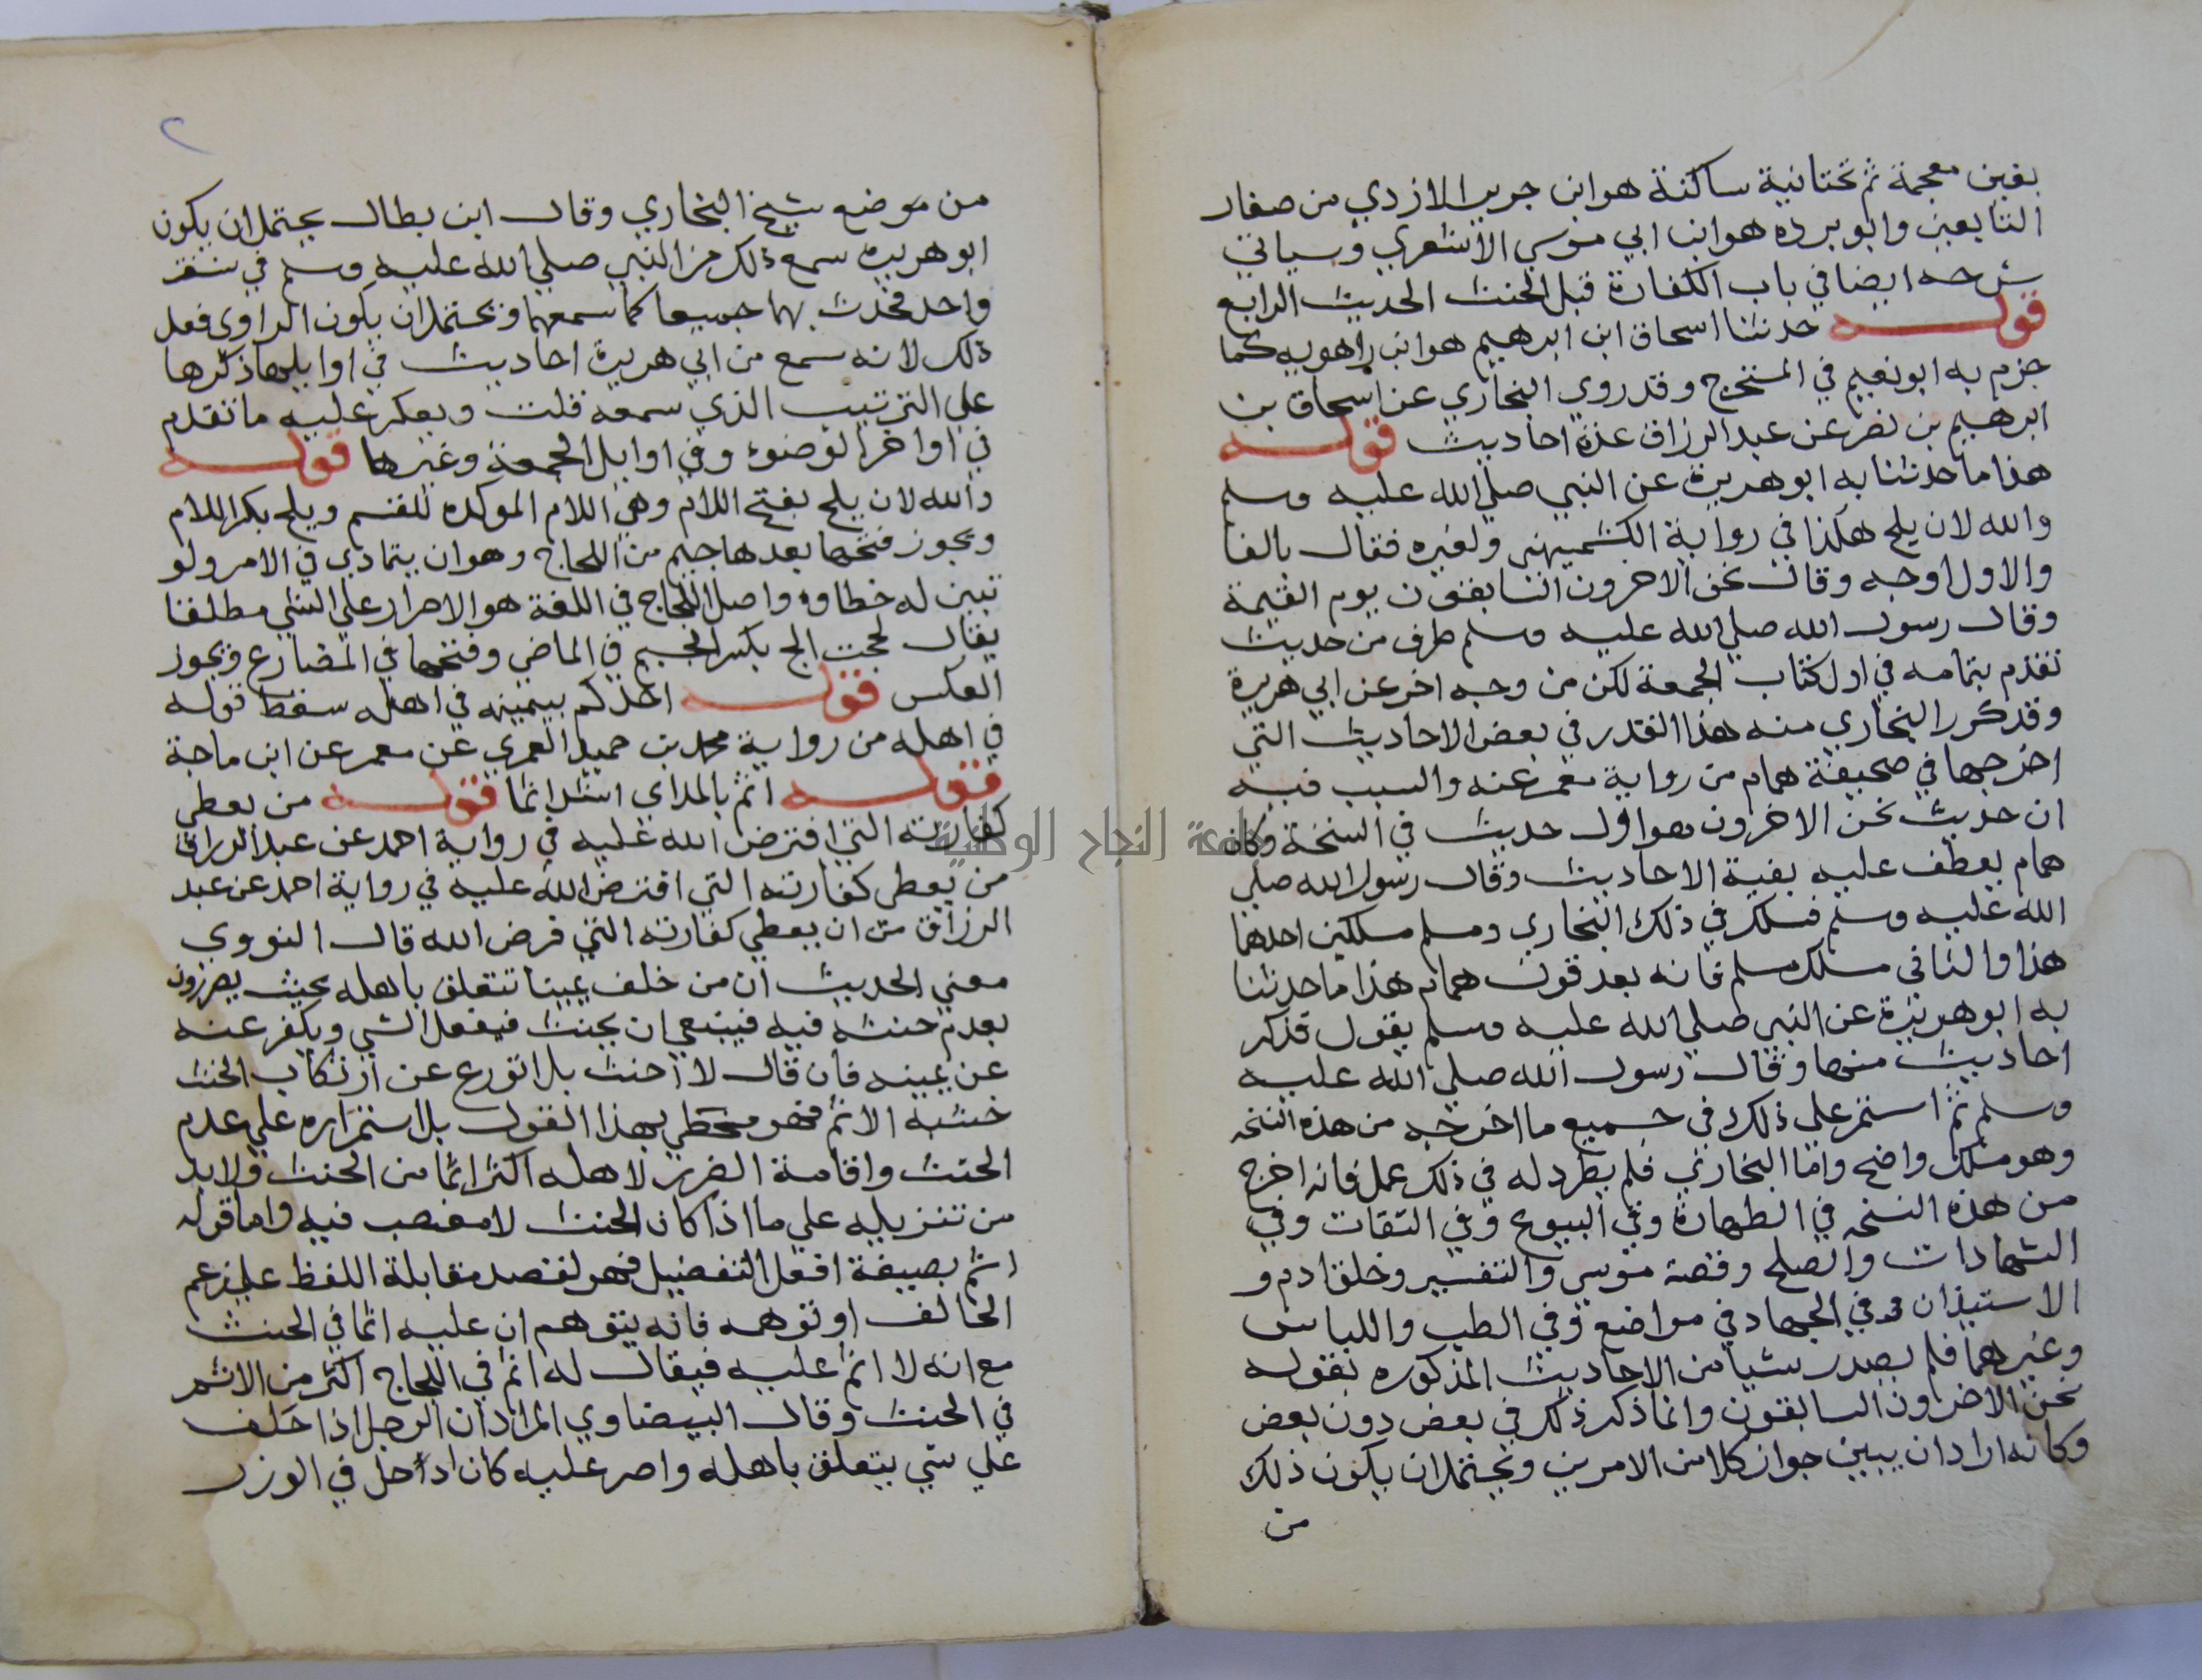 بغين معجمة ثم تحتانية ساكنة هو ابن جرير الازدي من صغار
التابعين وابو برده هو ابن ابي موسي الاشعري وسياتي
شرحه ايضا في باب الكفارة قبل الحنث الحديث الرابع
قوله حدثنا اسحاق ابن ابرهيم هو ابن راهويه كما
جزم به ابو نعيم في المستخرج وقد روي البخاري عن اسحاق بن
ابرهيم بن نصر عن عبد الرزاق عدة احاديث قوله
هذا ما حدثنا به ابو هريرة عن النبي صلي الله عليه وسلم
والله لان يلج هكذا في رواية الكشميهني ولغيره فقال بالفا
والاول اوجه وقال نحن الاخرون السابقون يوم القيمة
وقال رسول الله صلي الله عليه وسلم طرف من حديث
تقدم بتمامه في اول كتاب الجمعة لكن من وجه اخر عن ابي هريرة
وقد كرر البخاري منه هذا القدر في بعض الاحاديث التي
اخرجها في صحيفة همام من رواية معمر عنه والسبب فيه
ان حديث نحن الاخرون هو اول حديث في النسخة وكان
همام يعطف عليه بقية الاحاديث وقال رسول الله صلي
الله عليه وسلم فسلك في ذلك البخاري ومسلم مسلكين احدهما
هذا والثاني مسلك مسلم فانه بعد قول همام هذا ما حدثنا
به ابو هريرة عن النبي صلي الله عليه وسلم يقول فذكر
احاديث منها وقال رسول الله صلي الله عليه
وسلم ثم استمر علي ذلك في جميع ما اخرجه من هذه النسخه
وهو مسلك واضح واما البخاري فلم يطرد له في ذلك عمل فانه اخرج
من هذه النسخه في الطهارة وفي البيوع وفي النفقات وفي
الشهادات والصلح وقصة موسي والتفسير وخلق ادم و
الاستيذان وفي الجهاد في مواضع وفي الطب واللباس
وغيرهما فلم يصدر شيا من الاحاديث المذكوره بقوله
نحن الاخرون السابقون وانما ذكر ذلك في بعض دون بعض
وكانه اراد ان يبين جواز كلا من الامرين ويحتمل ان يكون ذلك
من
٢
من موضع شيخ البخاري وقال ابن بطال يحتمل ان يكون
ابو هريرة سمع ذلك من النبي صلي الله عليه وسلم في
واحد فحدث بهما جميعا كما سمعهما ويحتمل ان يكون الراوي فعل
ذلك لانه سمع من ابي هريرة احاديث في اوايلها ذكرها
علي الترتيب الذي سمعه قلت ويعكر عليه ما تقدم
في اواخر الوضوء وفي اوايل الجمعة وغيرها قوله
والله لان يلج بفتح اللام وهي اللام الموكده للقسم ويلج بكسر اللام
ويجوز فتحها بعدها جيم من اللجاج وهو ان يتمادي في الامر ولو
تبين له خطاوه واصل اللجاج في اللغة هو الاصرار علي الشي مطلقا
يقال لججت الج بكسر الجيم في الماضي وفتحها في المضارع ويجوز
العكس قوله احدكم بيمينه في اهله سقط قوله
في اهله من رواية محمد بن حميد المعمري عن معمر عن ابن ماجة
قوله اثم بالمد اي اشد اثما قوله من يعطي
كفارته التي افترض الله عليه في رواية احمد عن عبد الرزاق
من يعطي كفارته التي افترض الله عليه في رواية احمد عن عبد
الرزاق من ان يعطي كفارته التي فرض الله قال النووي
معني الحديث ان من حلف يمينا تتعلق باهله بحيث يضرون
بعدم حنثه فيه فينبغي ان يحنث فيفعل الشي ويكفر عنه
عن يمينه فان قال لا احنث بل اتورع عن ارتكاب الحنث
خشية الاثم فهو مخطي بهذا القول بل استمراره علي عدم
الحنث واقامة الضرر لاهله اكثر اثما من الحنث ولا بد
من تنزيله علي ما اذا كان الحنث لا معصية فيه واما قوله
اثم بصيغة افعل التفضيل فهو لقصد مقابلة اللفظ علي زعم
الحالف او توهمه فانه يتوهم ان عليه اثما في الحنث
مع انه لا اثم عليه فيقال له اثم في اللجاج اكثر من الاثم
في الحنث وقال البيضاوي المراد ان الرجل اذا حلف
علي شي يتعلق باهله واصر عليه كان ادخل في الوزر
جامعة النجاح الوطنية